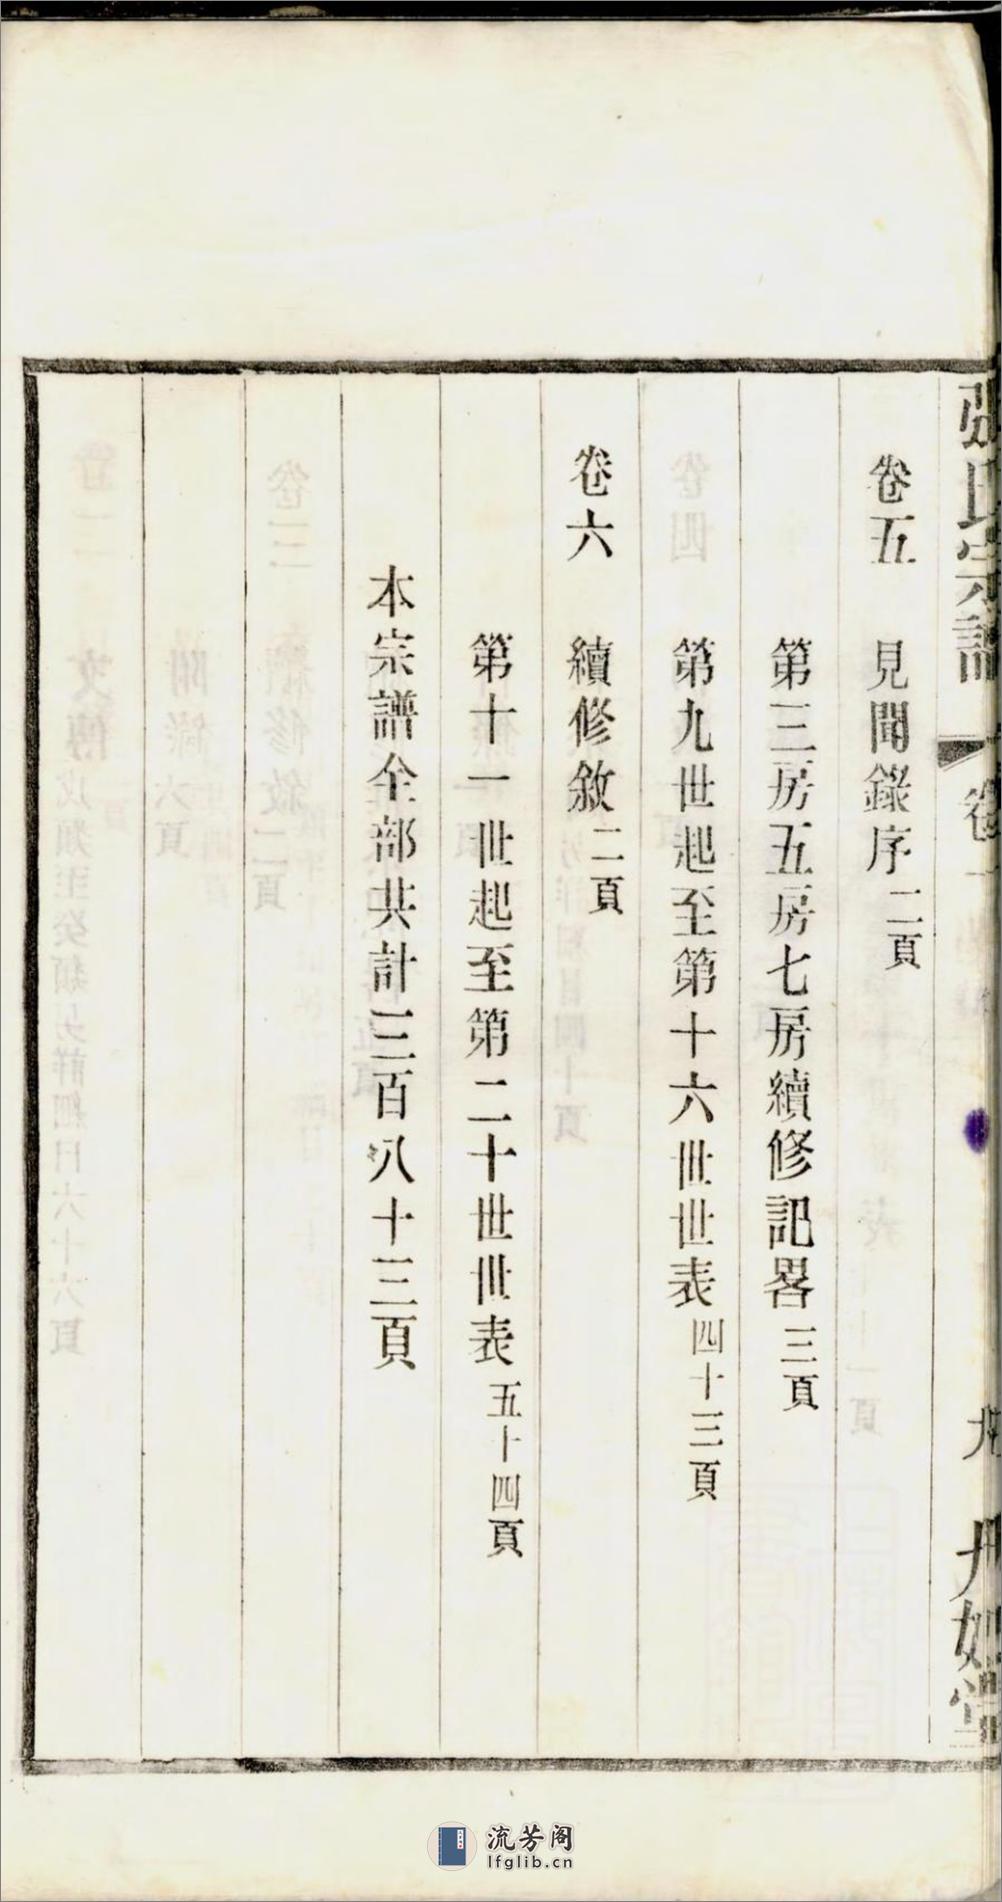 張氏宗譜 卷一
卷五 見聞錄序二頁
第三房五房七房續修記畧三頁
第九世起至第十六世世表四十三頁
卷六 續修敘二頁
第十一世起至第二十世世表五十四頁
本宗譜全部共計三百八十三頁
流芳阁
lfglib.cn